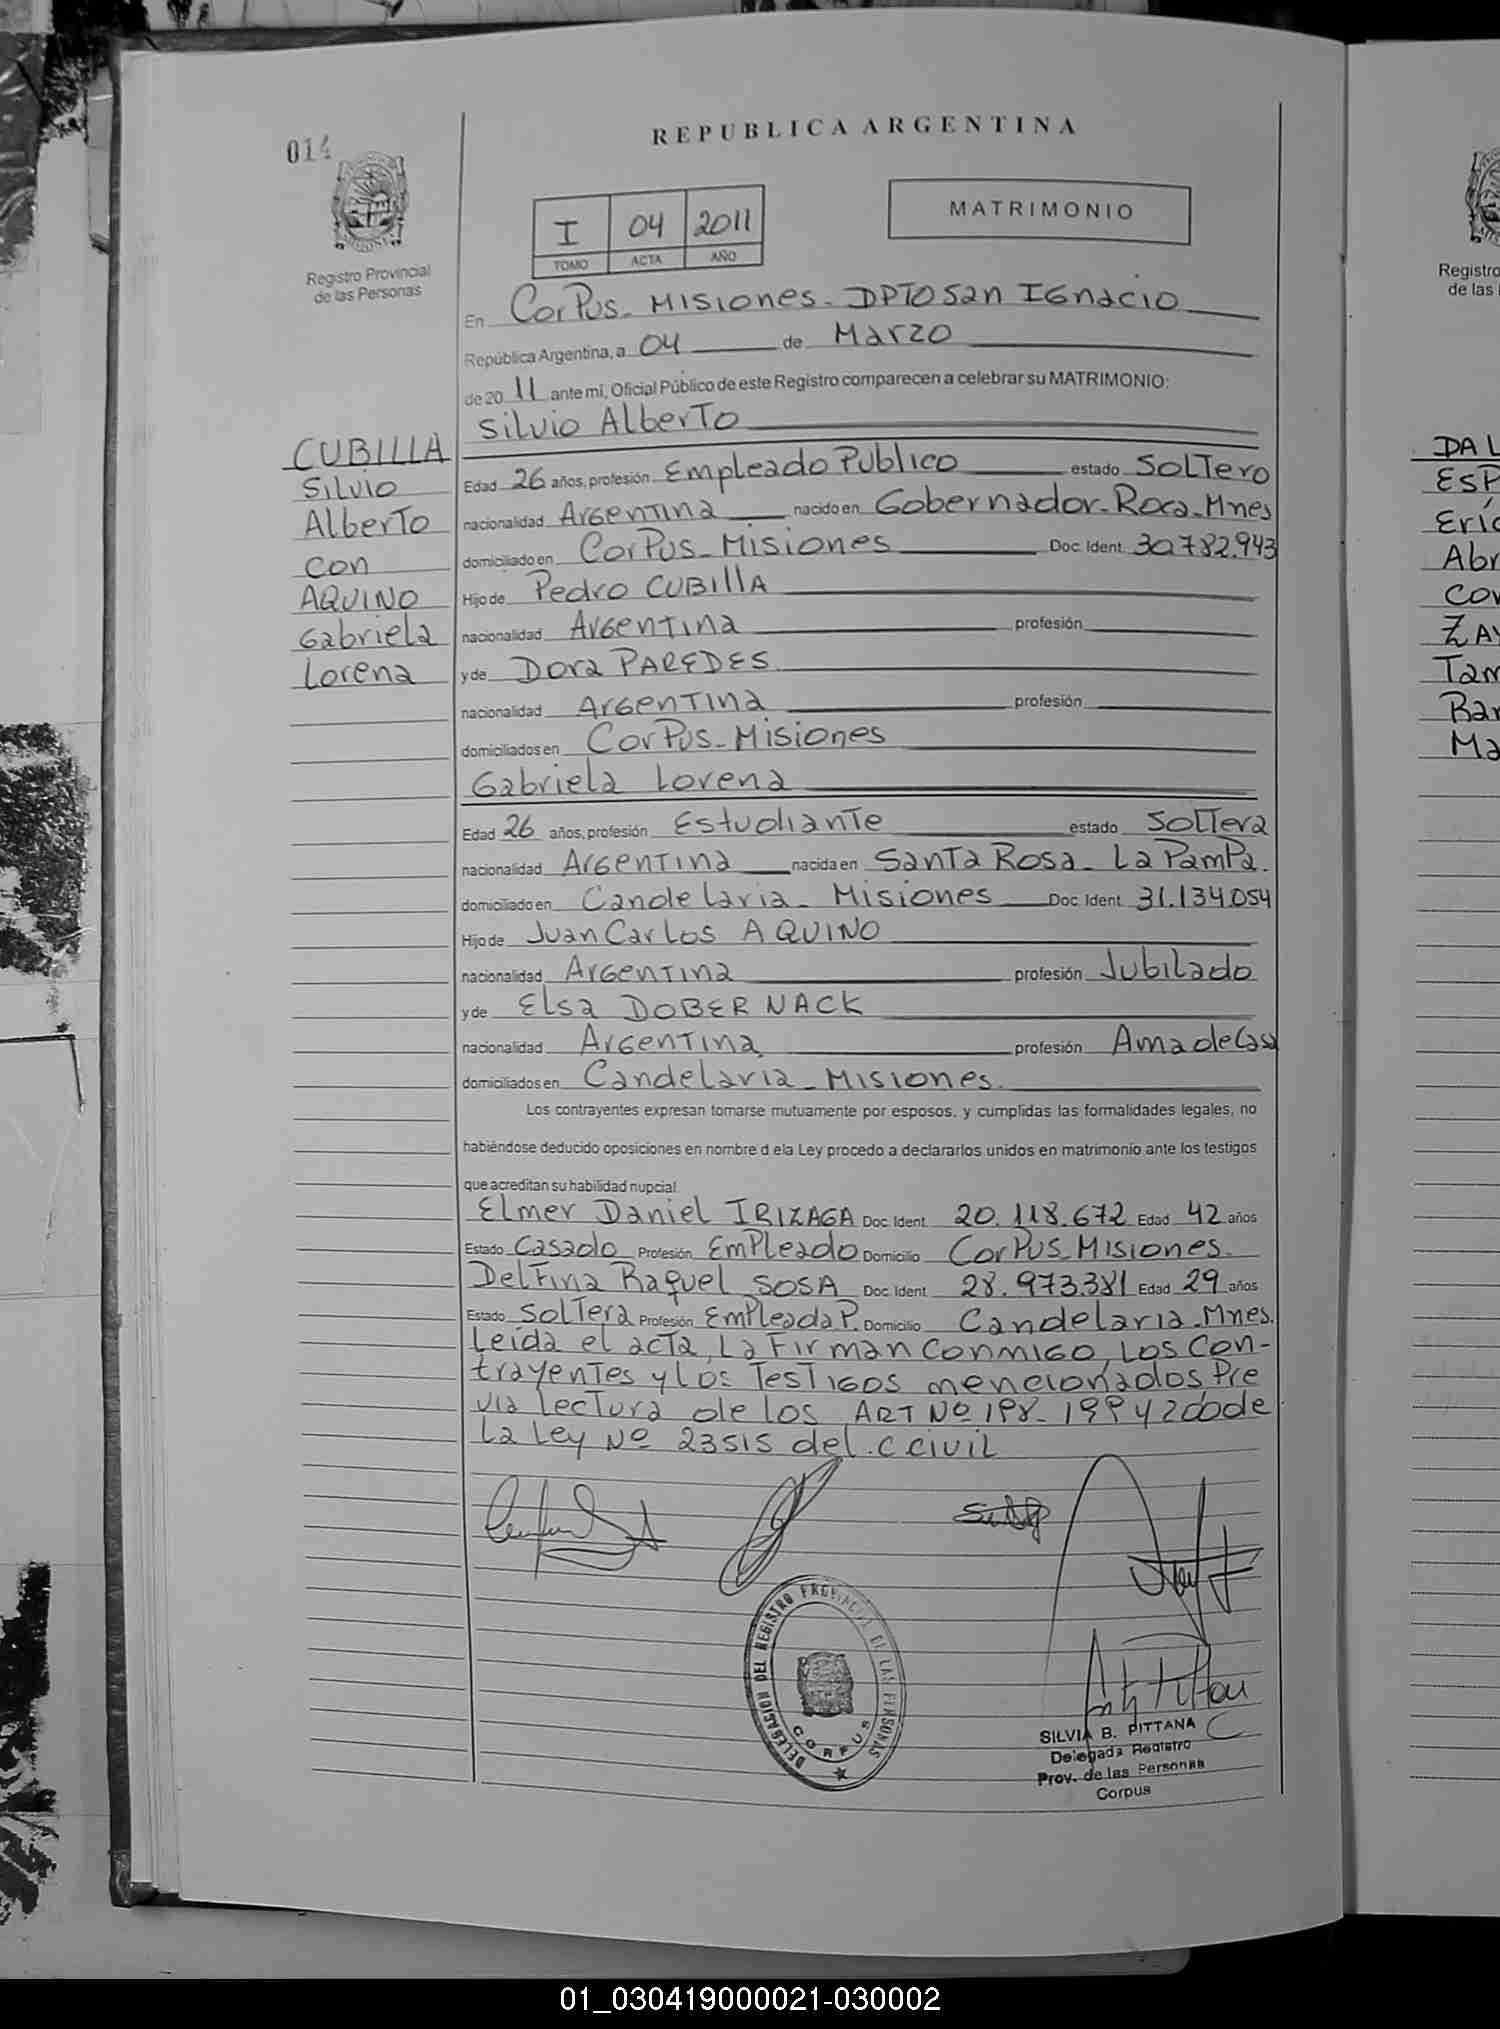 014
REPUBLICA ARGENTINA
Registro Provincial
de las Personas
I 04 2011
TOMO ACTA AÑO
MATRIMONIO
En Corpus - Misiones - DPTO San Ignacio
República Argentina, a 04 de Marzo
de 20 11 ante mí, Oficial Público de este Registro comparecen a celebrar su MATRIMONIO:
Silvio Alberto
CUBILLA
Silvio
Alberto
con
AQUINO
Gabriela
Lorena
Edad 26 años, profesión Empleado Publico estado Soltero
nacionalidad Argentina nacido en Gobernador - Roca - Mnes
domiciliado en Corpus - Misiones Doc. Ident. 30.782.943
Hijo de Pedro CUBILLA
nacionalidad Argentina profesión
y de Dora PAREDES
nacionalidad Argentina profesión
domiciliados en Corpus - Misiones
Gabriela Lorena
Edad 26 años, profesión Estudiante estado Soltera
nacionalidad Argentina nacida en Santa Rosa - La Pampa.
domiciliado en Candelaria - Misiones Doc. Ident. 31.134.054
Hijo de Juan Carlos AQUINO
nacionalidad Argentina profesión Jubilado
y de Elsa DOBERNACK
nacionalidad Argentina profesión Ama de Casa
domiciliados en Candelaria - Misiones.
Los contrayentes expresan tomarse mutuamente por esposos, y cumplidas las formalidades legales, no
habiéndose deducido oposiciones en nombre d ela Ley procedo a declararlos unidos en matrimonio ante los testigos
que acreditan su habilidad nupcial.
Elmer Daniel IRIZAGA Doc. Ident. 20.118.672 Edad 42 años
Estado Casado Profesión Empleado Domicilio Corpus Misiones.
Delfina Raquel SOSA Doc. Ident. 28.973.381 Edad 29 años
Estado Soltera Profesión Empleada P. Domicilio Candelaria - Mnes.
Leida el acta, La Firman conmigo, Los Con-
trayentes y los Testigos mencionados, Pre
via Lectura de los ART Nº 198 - 199 y 200 de
La Ley Nº 23515 del C Civil
DELEGACION DEL REGISTRO PROVINCIAL DE LAS PERSONAS
CORPUS
SILVIA B. PITTANA
Delegada Registro
Prov. de las Personas
Corpus
Registro
de las
DA L
ESP
Eríc
Abr
Cor
ZAY
Tam
Bar
Ma
01_030419000021-030002